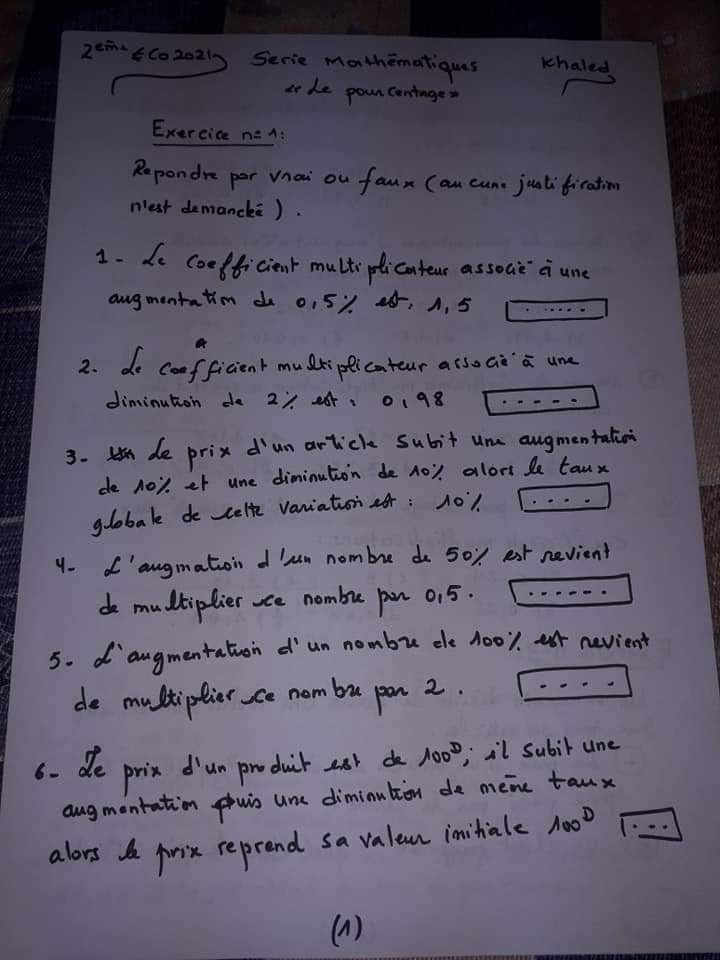 2ème Eco 2021 Serie Mathématiques Khaled
"Le pourcentage"
Exercice n=1:
Repondre par vrai ou faux (aucune justification
n'est demandé).
1- Le coefficient multiplicateur associé à une
augmentation de 0,5% est, 1,5 ......
2. Le coefficient multiplicateur associé à une
diminution de 2% est: 0,98 .....
3- Le prix d'un article subit une augmentation
de 10% et une diminution de 10% alors le taux
globale de cette variation est: 10% ....
4- L'augmation d'un nombre de 50% est revient
de multiplier ce nombre par 0,5. ......
5- L'augmentation d'un nombre de 100% est revient
de multiplier ce nombre par 2. .....
6- Le prix d'un produit est de 100D; il subit une
augmentation puis une diminution de même taux
alors le prix reprend sa valeur initiale 100D ...
(1)